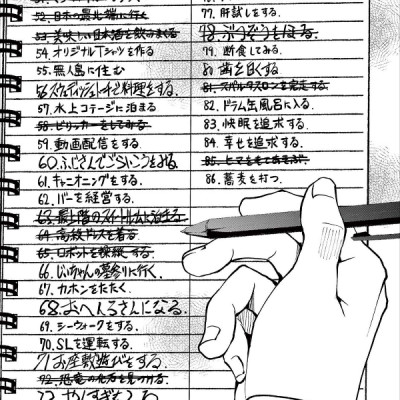 52. 日本の最北端に行く
53. 美味しい日本酒を飲みまくる
54. オリジナルTシャツを作る
55. 無人島に住む
56. スケディッシュチで料理をする。
57. 水上コテージに泊まる
58. ヒッチハイカーをしてみる
59. 動画配信をする。
60. ふじさんでごらいこうをみる
61. キャニオニングをする。
62. バーを経営する。
63. 最上階のスイートルームに泊まる。
64. 高級ドレスを着る
65. ロボットを操縦する。
66. じいちゃんの墓参りに行く。
67. カホンをたたく。
68. おへんろさんになる。
69. シーウォークをする。
70. SLを運転する。
71. お座敷遊びをする。
72. 恐竜の化石を見つける。
77. 肝試しをする。
78. ぶつぞうをほる。
79. 断食してみる。
80. 歯を白くする
81. スパルタスロンを完走する。
82. ドラム缶風呂に入る。
83. 快眠を追求する。
84. 幸せを追求する。
86. 蕎麦を打つ。